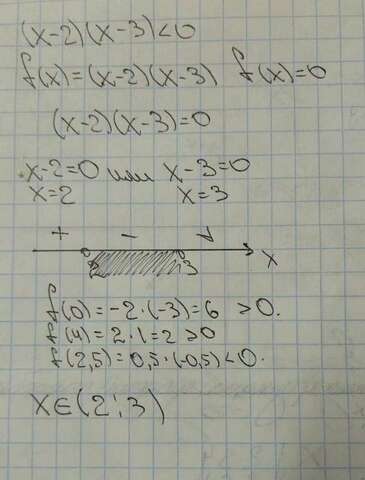 (x-2)(x-3)<0
f(x)=(x-2)(x-3) f(x)=0
(x-2)(x-3)=0
x-2=0 или x-3=0
x=2 x=3
+ - +
2 3 x
f(0)=-2·(-3)=6 >0.
f(4)=2·1=2>0
f(2,5)=0,5·(-0,5)<0.
x∈(2;3)